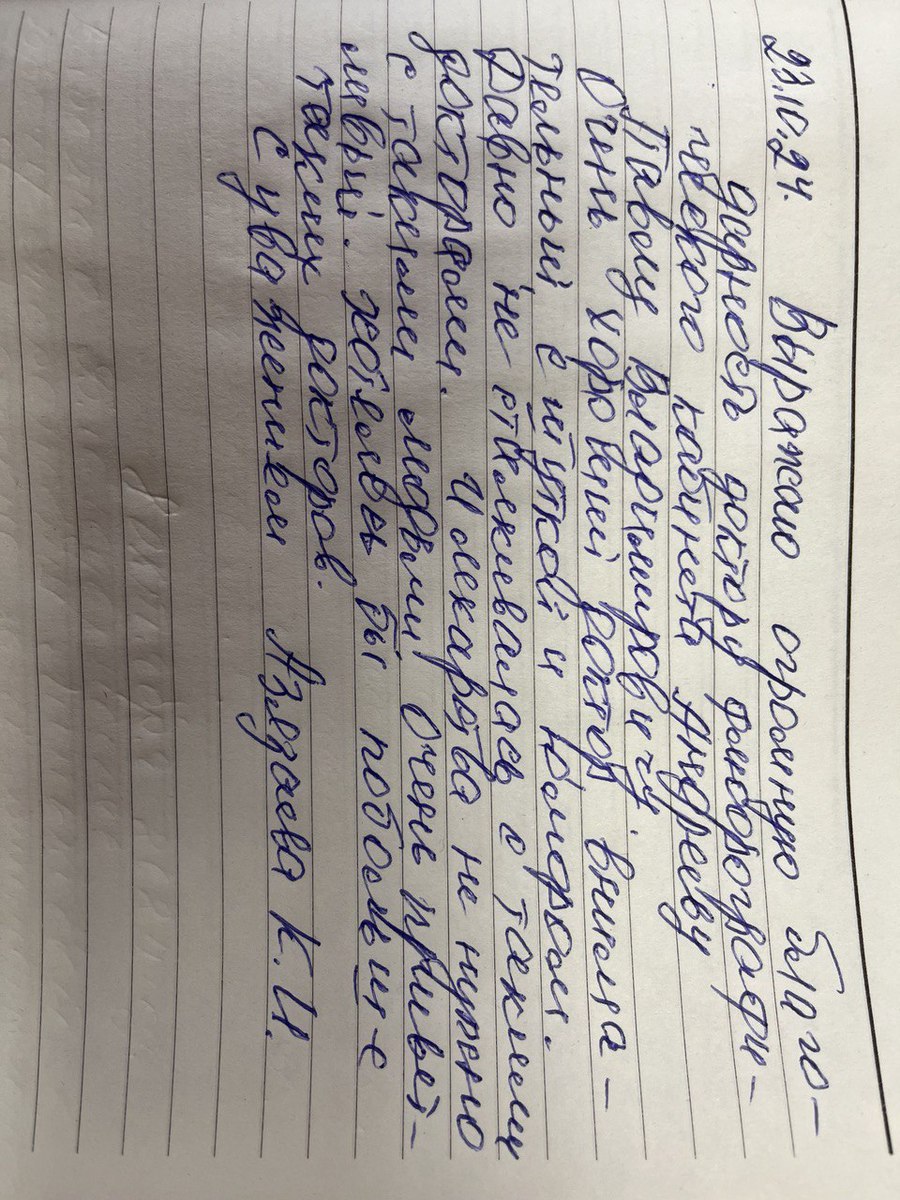 23.10.24.
Выражаю огромную благо-
дарность доктору флюорографи-
ческого кабинета Андрееву
Павлу Владимировичу.
Очень хороший доктор, внима-
тельный с шуткой и юмором.
Давно не сталкивалась с такими
докторами. И лекарства не нужно
с такими людьми. Очень привет-
ливый. Хотелось бы побольше
таких докторов.
С уважением К.И.